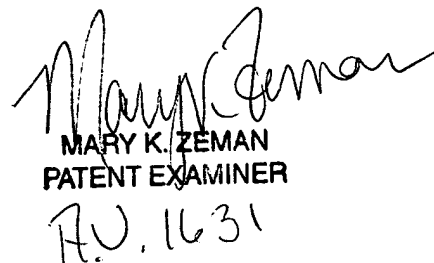 Mary K. Zeman
MARY K. ZEMAN
PATENT EXAMINER
A.U. 1631